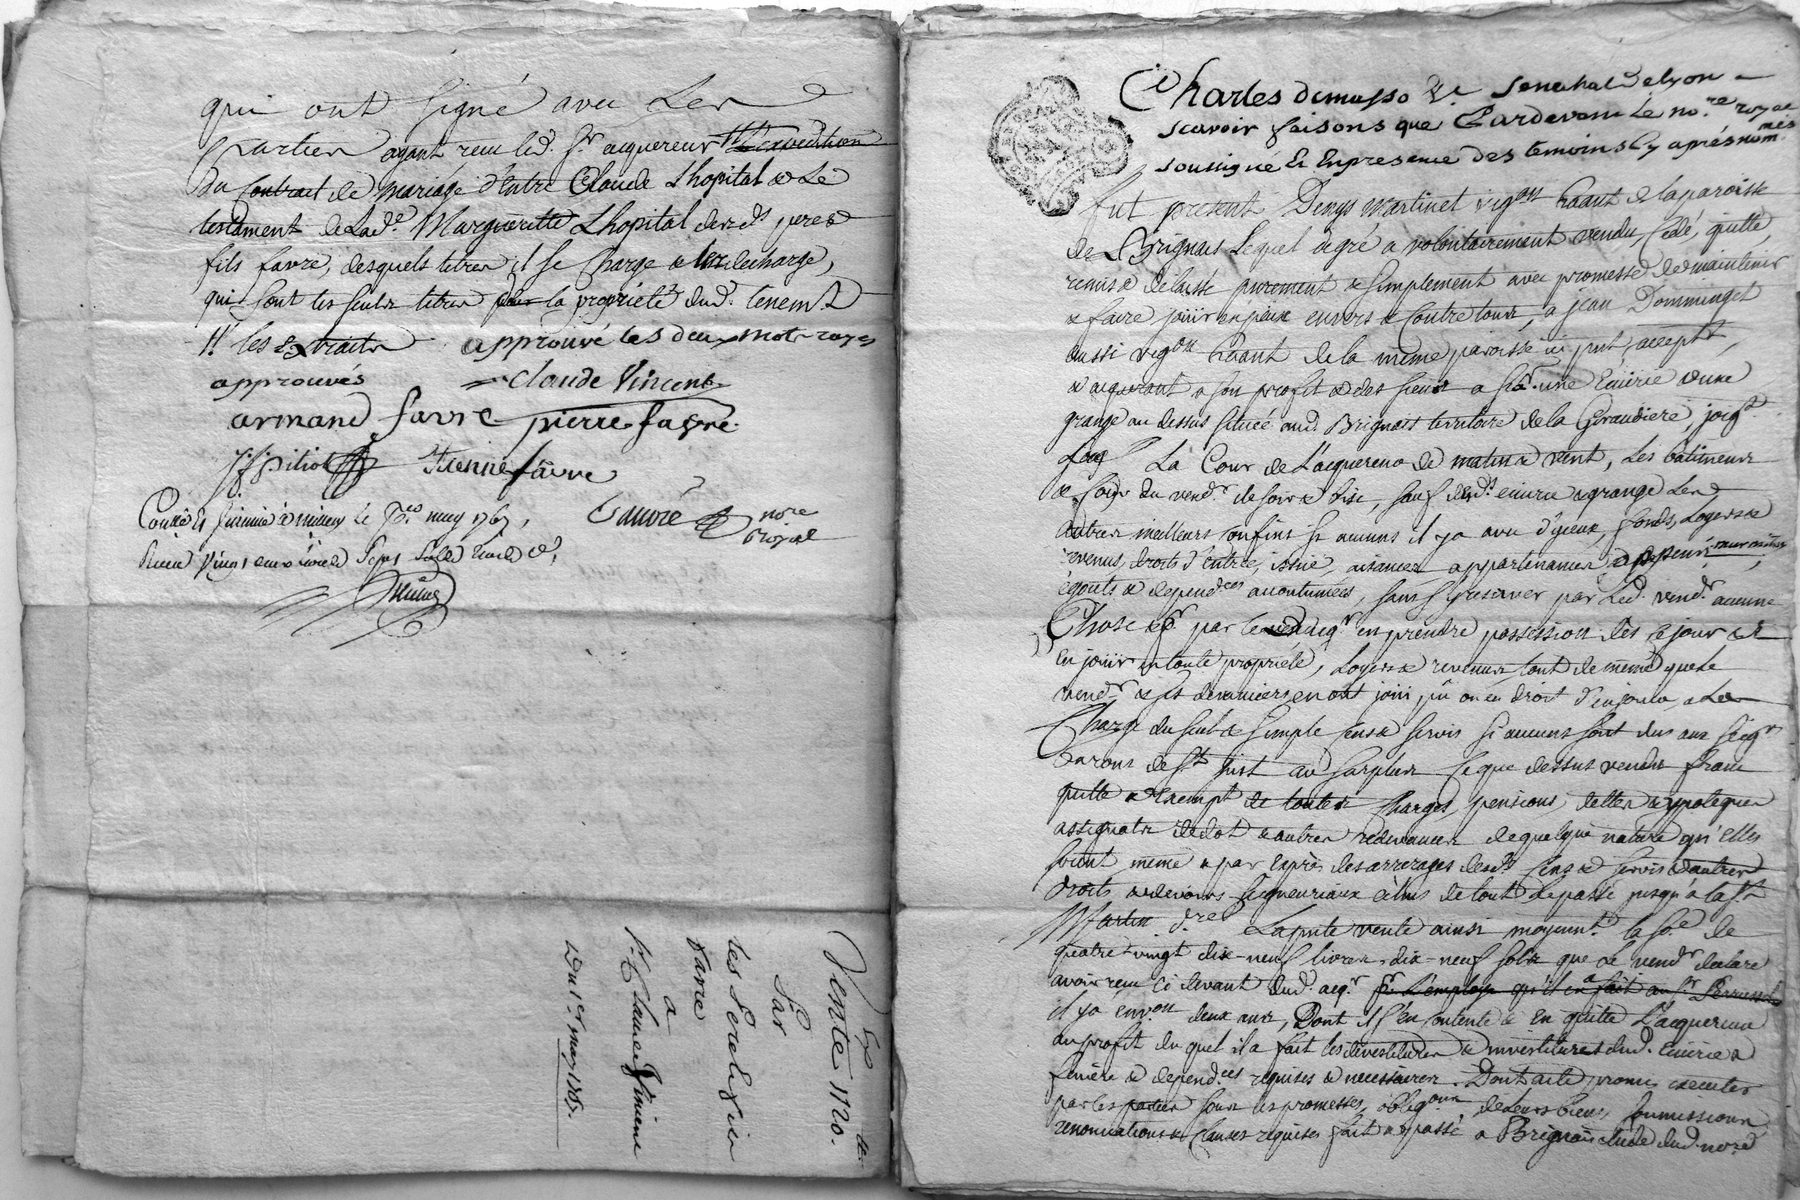 qui ont signé avec Les
parties ayant reçu led. Sr. acquereur l'expedition
du Contract de mariage d'Entre Claude Lhopital & Le
testament de Lade. Margueritte Lhopital des ds peres
fils favre, desquels titres il se Charge & les decharge,
qui sont les seuls titres de la propriété dud. tenemt
les Extraits approuvé les deux mots rayés
approuvés Claude Vincent
armand favre pierre favre
Pitiot Etienne favre
Controllé à le may 1767,
Reçu Vingt livres Sept Sols
nore Royal
Charles Demasso Senechal de Lyon
scavoir faisons que Pardevant le nore. royal
soussigné Et En presence des temoins Cy aprés nommés
fut present Denys Martinet vigon habant de la paroisse
de Brignais Lequel de gré a volontairement vendu, Cédé, quitté,
remis & délaissé purement & simplement avec promesse de maintenir
& faire jouir en paix envers & Contre tous, a jean Domminget
aussi vigon habant de la même paroisse ici pnt, acceptt,
& acquerant a son profit & des siens a sçr. une Ecurie & une
grange au dessus située aud. Brignais territoire de la Giraudiere, joigt
La Cour de L'acquereur de matin & vent, Les bâtimens
& Cour du vendr. de soir & bise, sauf desds. ecurie & grange Les
autres meilleurs Confins si aucuns il y a avec d'yceux, fonds, Loyers &
revenus, droits d'entrée, issüe, aisances, appartenances
égouts & dependces accoutumées, sans s'y reserver par Led. vendr. aucune
Chose pr. par acqr en prendre possession dès ce jour &
en jouir en toute propriété, Loyers & revenus tout de même que Le
vendr. & ses devanciers en ont joui pû ou eu droit d'en jouir, a La
Charge du seul & simple Cens & servis si aucuns sont dus aux seigrs
Barons de St just au surplus Ce que dessus vendu franc
quitte & Exempt de toutes Charges, pensions, dettes & hypoteques
assignats de dot & autres redevances de quelque nature qu'Elles
soient même & par Exprès des arrerages desds Cens & servis & autres
droits & devoirs seigneuriaux échus de tout le passé jusqu'a la St
Martin dre. La pnte vente ainsi moyennt. la Se. de
quatre-vingt dix-neuf livres dix-neuf sols que Le vendr. declare
avoir reçu Ci devant dud. acqr. pr. L'employ qu'il en a fait au Sr.
il y a environ deux ans, Dont il s'en Contente & En quitte L'acquereur
au profit du quel il a fait les devestitures & investitures dud. Ecurie &
feniere & dependces requises & necessaires. Dont acte promis executer
par les parties sous les promesses, obligons, de Leurs biens, soumissions
renonciations & Clauses requises fait & passé a Brignais Etude dud. nore
Ex
Vente 1720.
Par
Les Srs
favre
a
Sr. Claude
Du 1er. may 1767